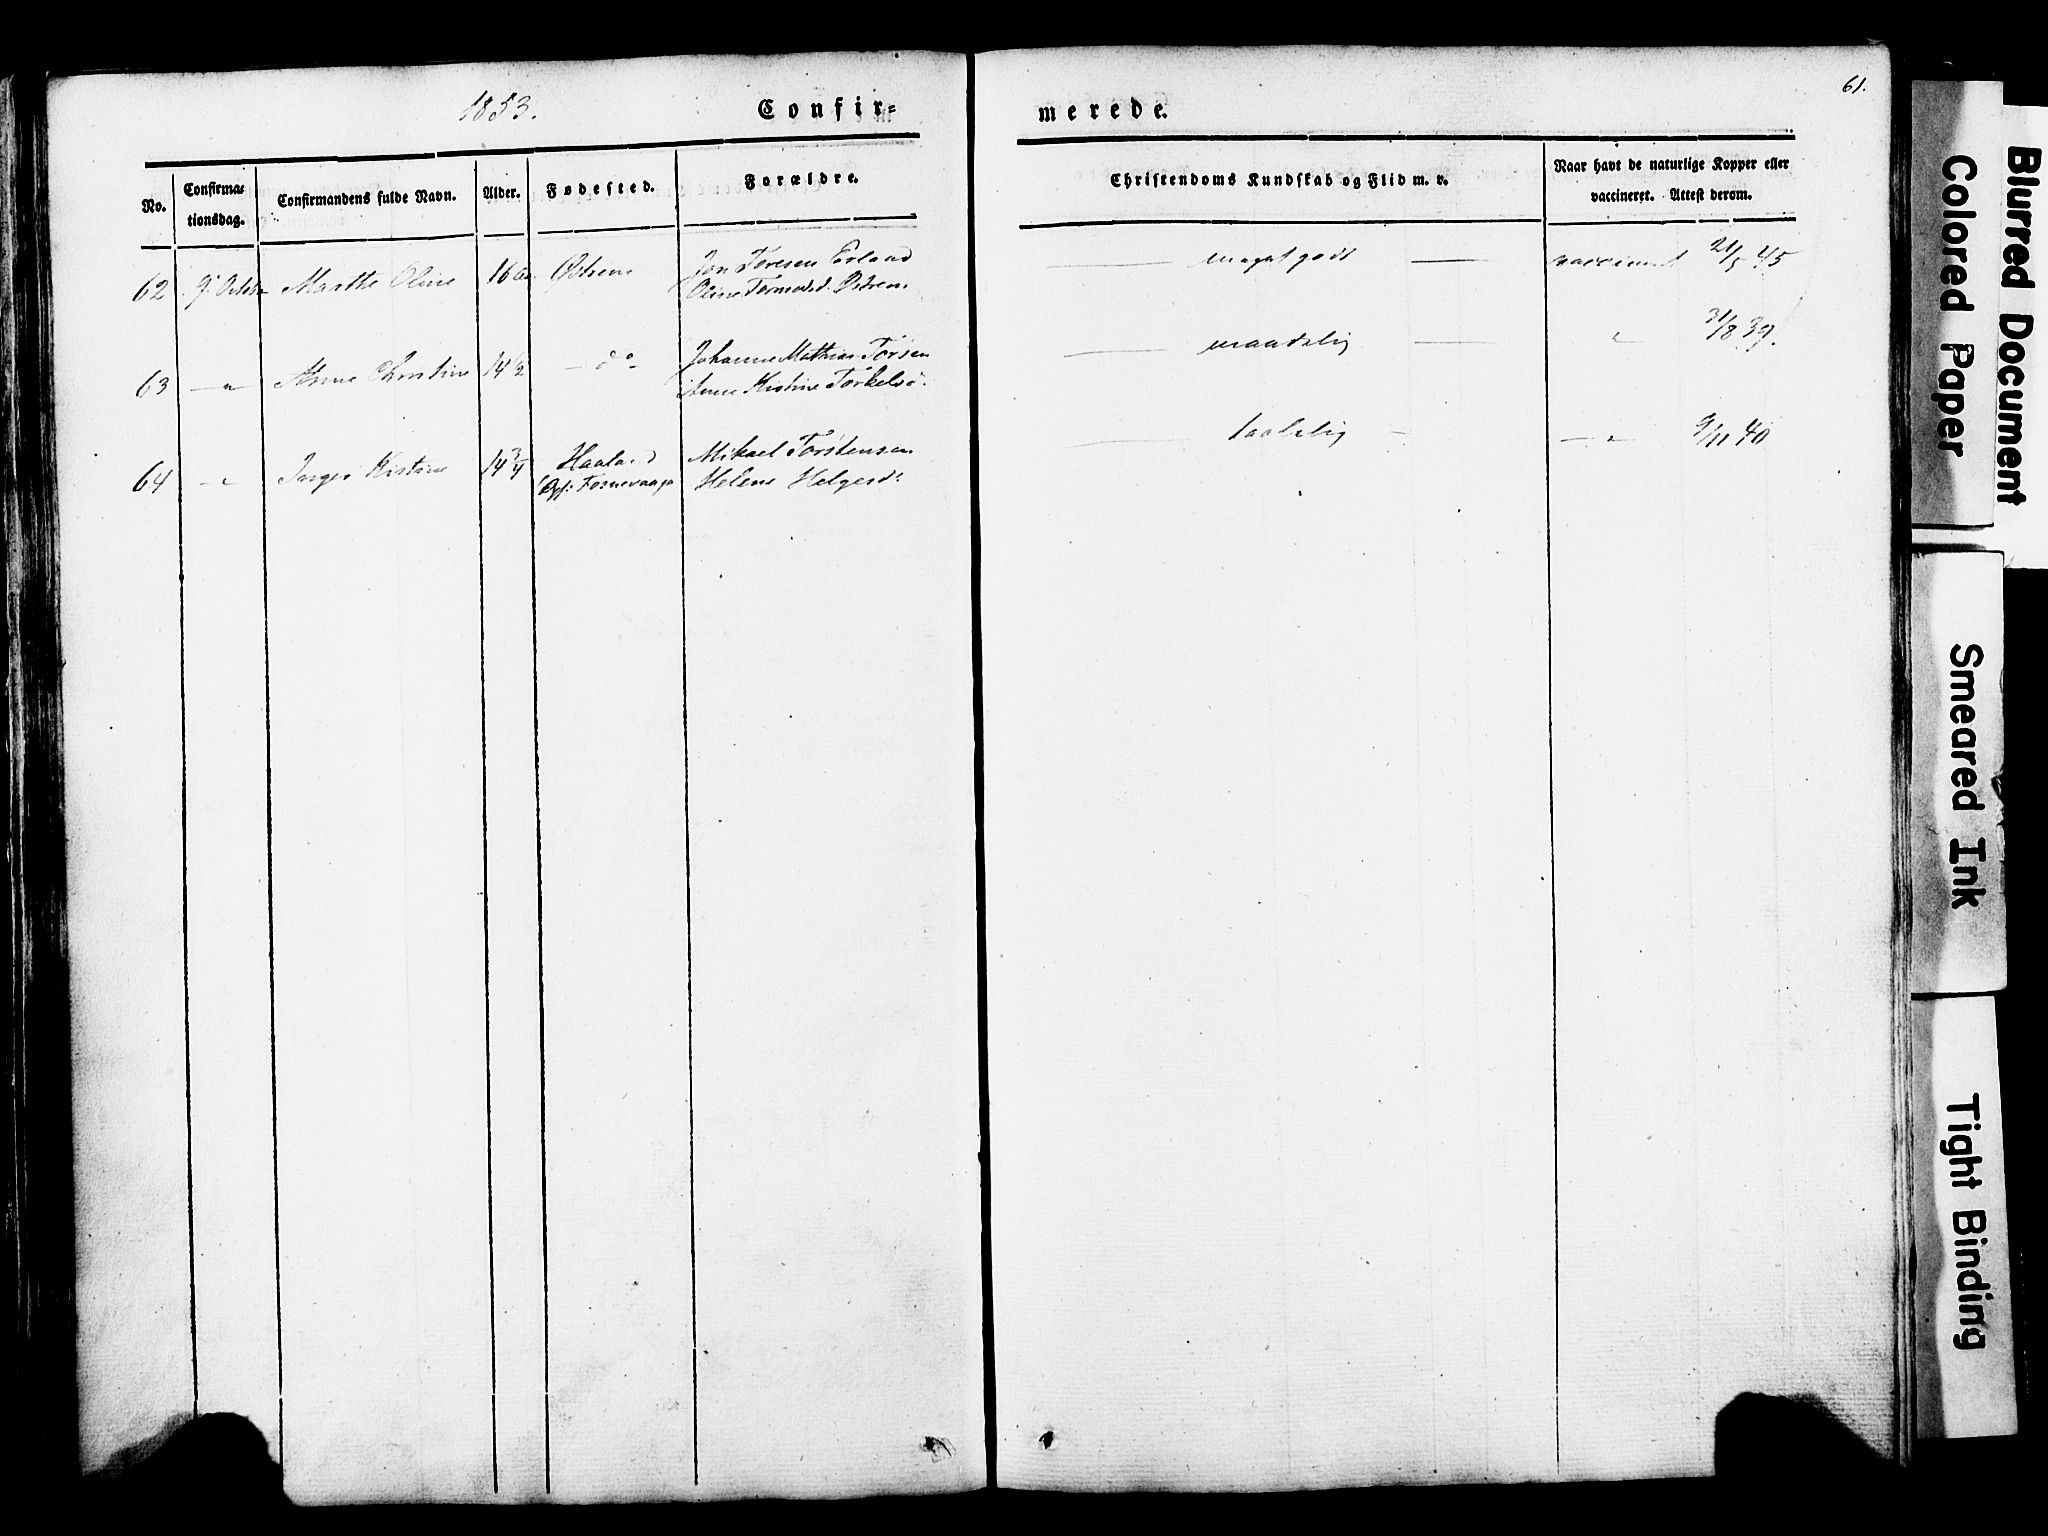 1853.
Confir-
merede.
61.
No.
Confirma-
tionsdag.
Confirmandens fulde Navn.
Alder.
Fødested.
Forældre.
Christendoms Kundskab og Flid m. v.
Naar havt de naturlige Kopper eller
vaccineret. Attest derom.
62 9. Octobr Marthe Oline 16 Østrem Jon Toresen Erland
Oline Tormodsd. Østrem
meget godt vaccineret 21/5 45
63 — " Anne Christine 14 1/2 — do — Johannes Mathias Torsen
Anne Kistine Torkelsd.
maadelig " 31/8 39.
64 — " Inger Kistine 14 3/4 Haaland Mikael Torstensen
Opf: Fosnevaage Helene Helgesd:
taalelig — " 9/11 40
Blurred Document
Colored Paper
Smeared Ink
Tight Binding